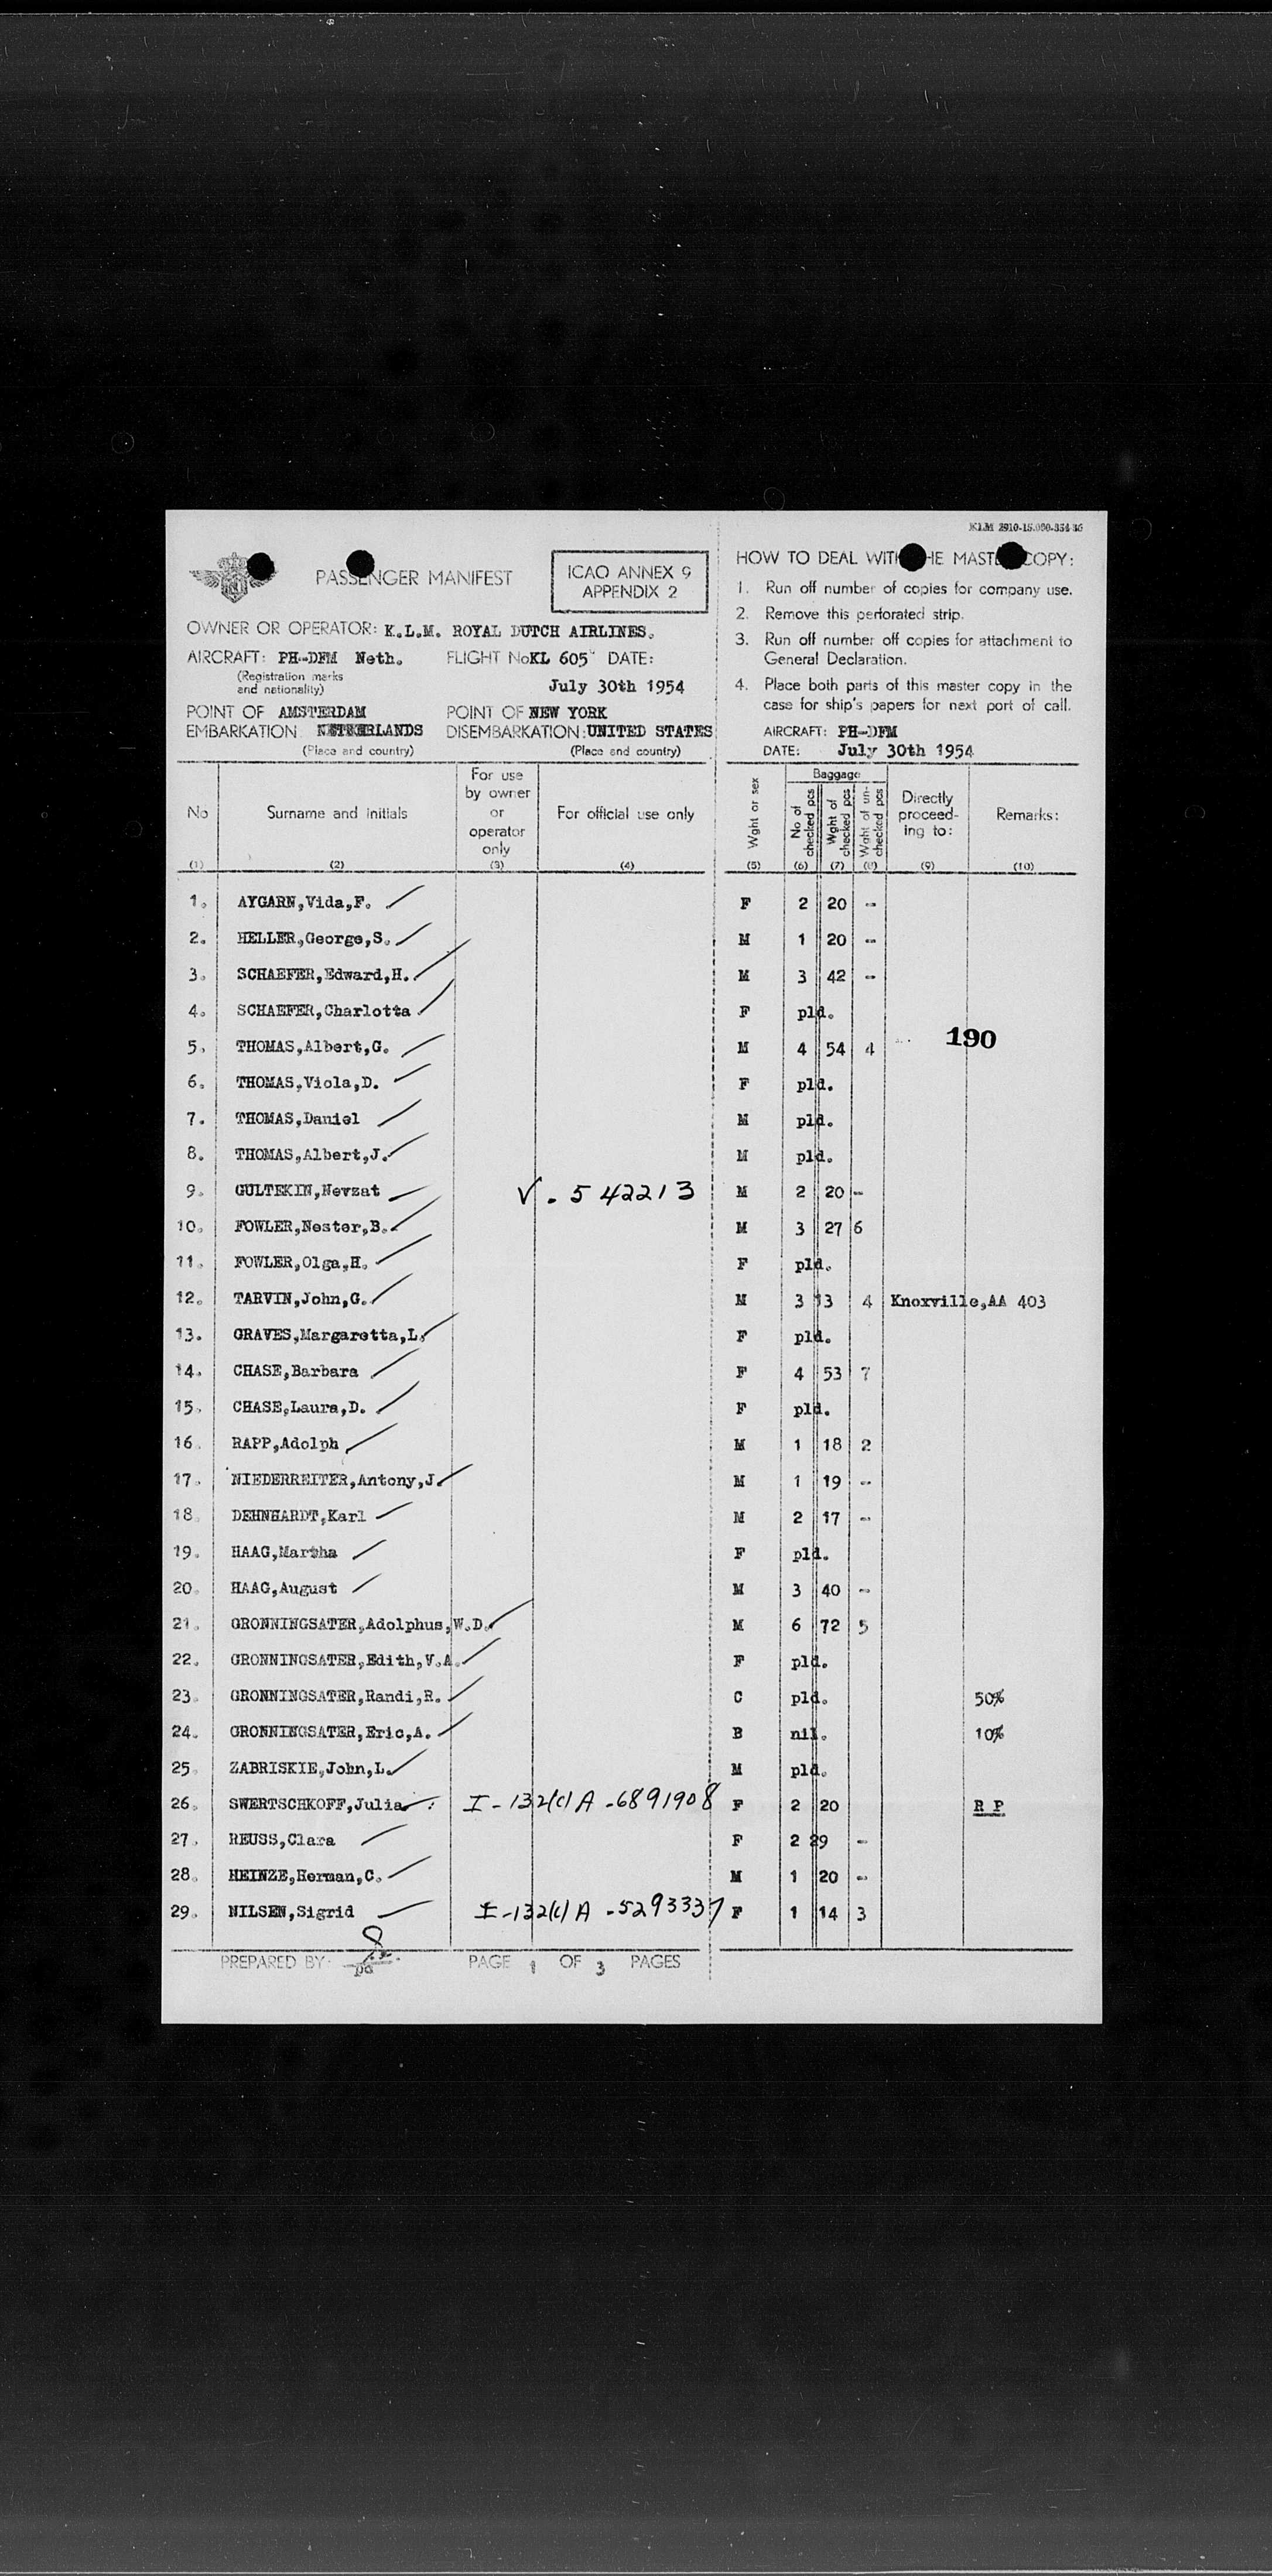 KLM 2910-15.000-354 36
PASSENGER MANIFEST
ICAO ANNEX 9
APPENDIX 2
OWNER OR OPERATOR: K.L.M. ROYAL DUTCH AIRLINES.
AIRCRAFT: PH-DFM Neth. FLIGHT No KL 605 DATE:
(Registration marks
and nationality)
July 30th 1954
POINT OF AMSTERDAM POINT OF NEW YORK
EMBARKATION NETHERLANDS DISEMBARKATION: UNITED STATES
(Place and country) (Place and country)
HOW TO DEAL WITH THE MASTER COPY:
1. Run off number of copies for company use.
2. Remove this perforated strip.
3. Run off number off copies for attachment to
General Declaration.
4. Place both parts of this master copy in the
case for ship's papers for next port of call.
AIRCRAFT: PH-DFM
DATE: July 30th 1954
No Surname and initials For use by owner or operator only For official use only Wght or sex Baggage No of checked pcs Wght of checked pcs Wght of un-checked pcs Directly proceed-ing to: Remarks:
(1) (2) (3) (4) (5) (6) (7) (8) (9) (10)
1. AYGARN,Vida,F. F 2 20 -
2. HELLER,George,S. M 1 20 -
3. SCHAEFER,Edward,H. M 3 42 -
4. SCHAEFER,Charlotta F pld.
190
5. THOMAS,Albert,G. M 4 54 4
6. THOMAS,Viola,D. F pld.
7. THOMAS,Daniel M pld.
8. THOMAS,Albert,J. M pld.
9. GULTEKIN,Nevzat V. 542213 M 2 20 -
10. FOWLER,Nester,B. M 3 27 6
11. FOWLER,Olga,H. F pld.
12. TARVIN,John,G. M 3 13 4 Knoxville,AA 403
13. GRAVES,Margaretta,L. F pld.
14. CHASE,Barbara F 4 53 7
15. CHASE,Laura,D. F pld.
16. RAPP,Adolph M 1 18 2
17. NIEDERREITER,Antony,J. M 1 19 -
18. DEHNHARDT,Karl M 2 17 -
19. HAAG,Martha F pld.
20. HAAG,August M 3 40 -
21. GRONNINGSATER,Adolphus,W.D. M 6 72 5
22. GRONNINGSATER,Edith,V.A. F pld.
23. GRONNINGSATER,Randi,R. C pld. 50%
24. GRONNINGSATER,Eric,A. B nil. 10%
25. ZABRISKIE,John,L. M pld.
26. SWERTSCHKOFF,Julia I-132(c) A-6891908 F 2 20 R P
27. REUSS,Clara F 2 29 -
28. HEINZE,Herman,C. M 1 20 -
29. NILSEN,Sigrid I-132(c) A-5293337 F 1 14 3
PREPARED BY: PAGE 1 OF 3 PAGES